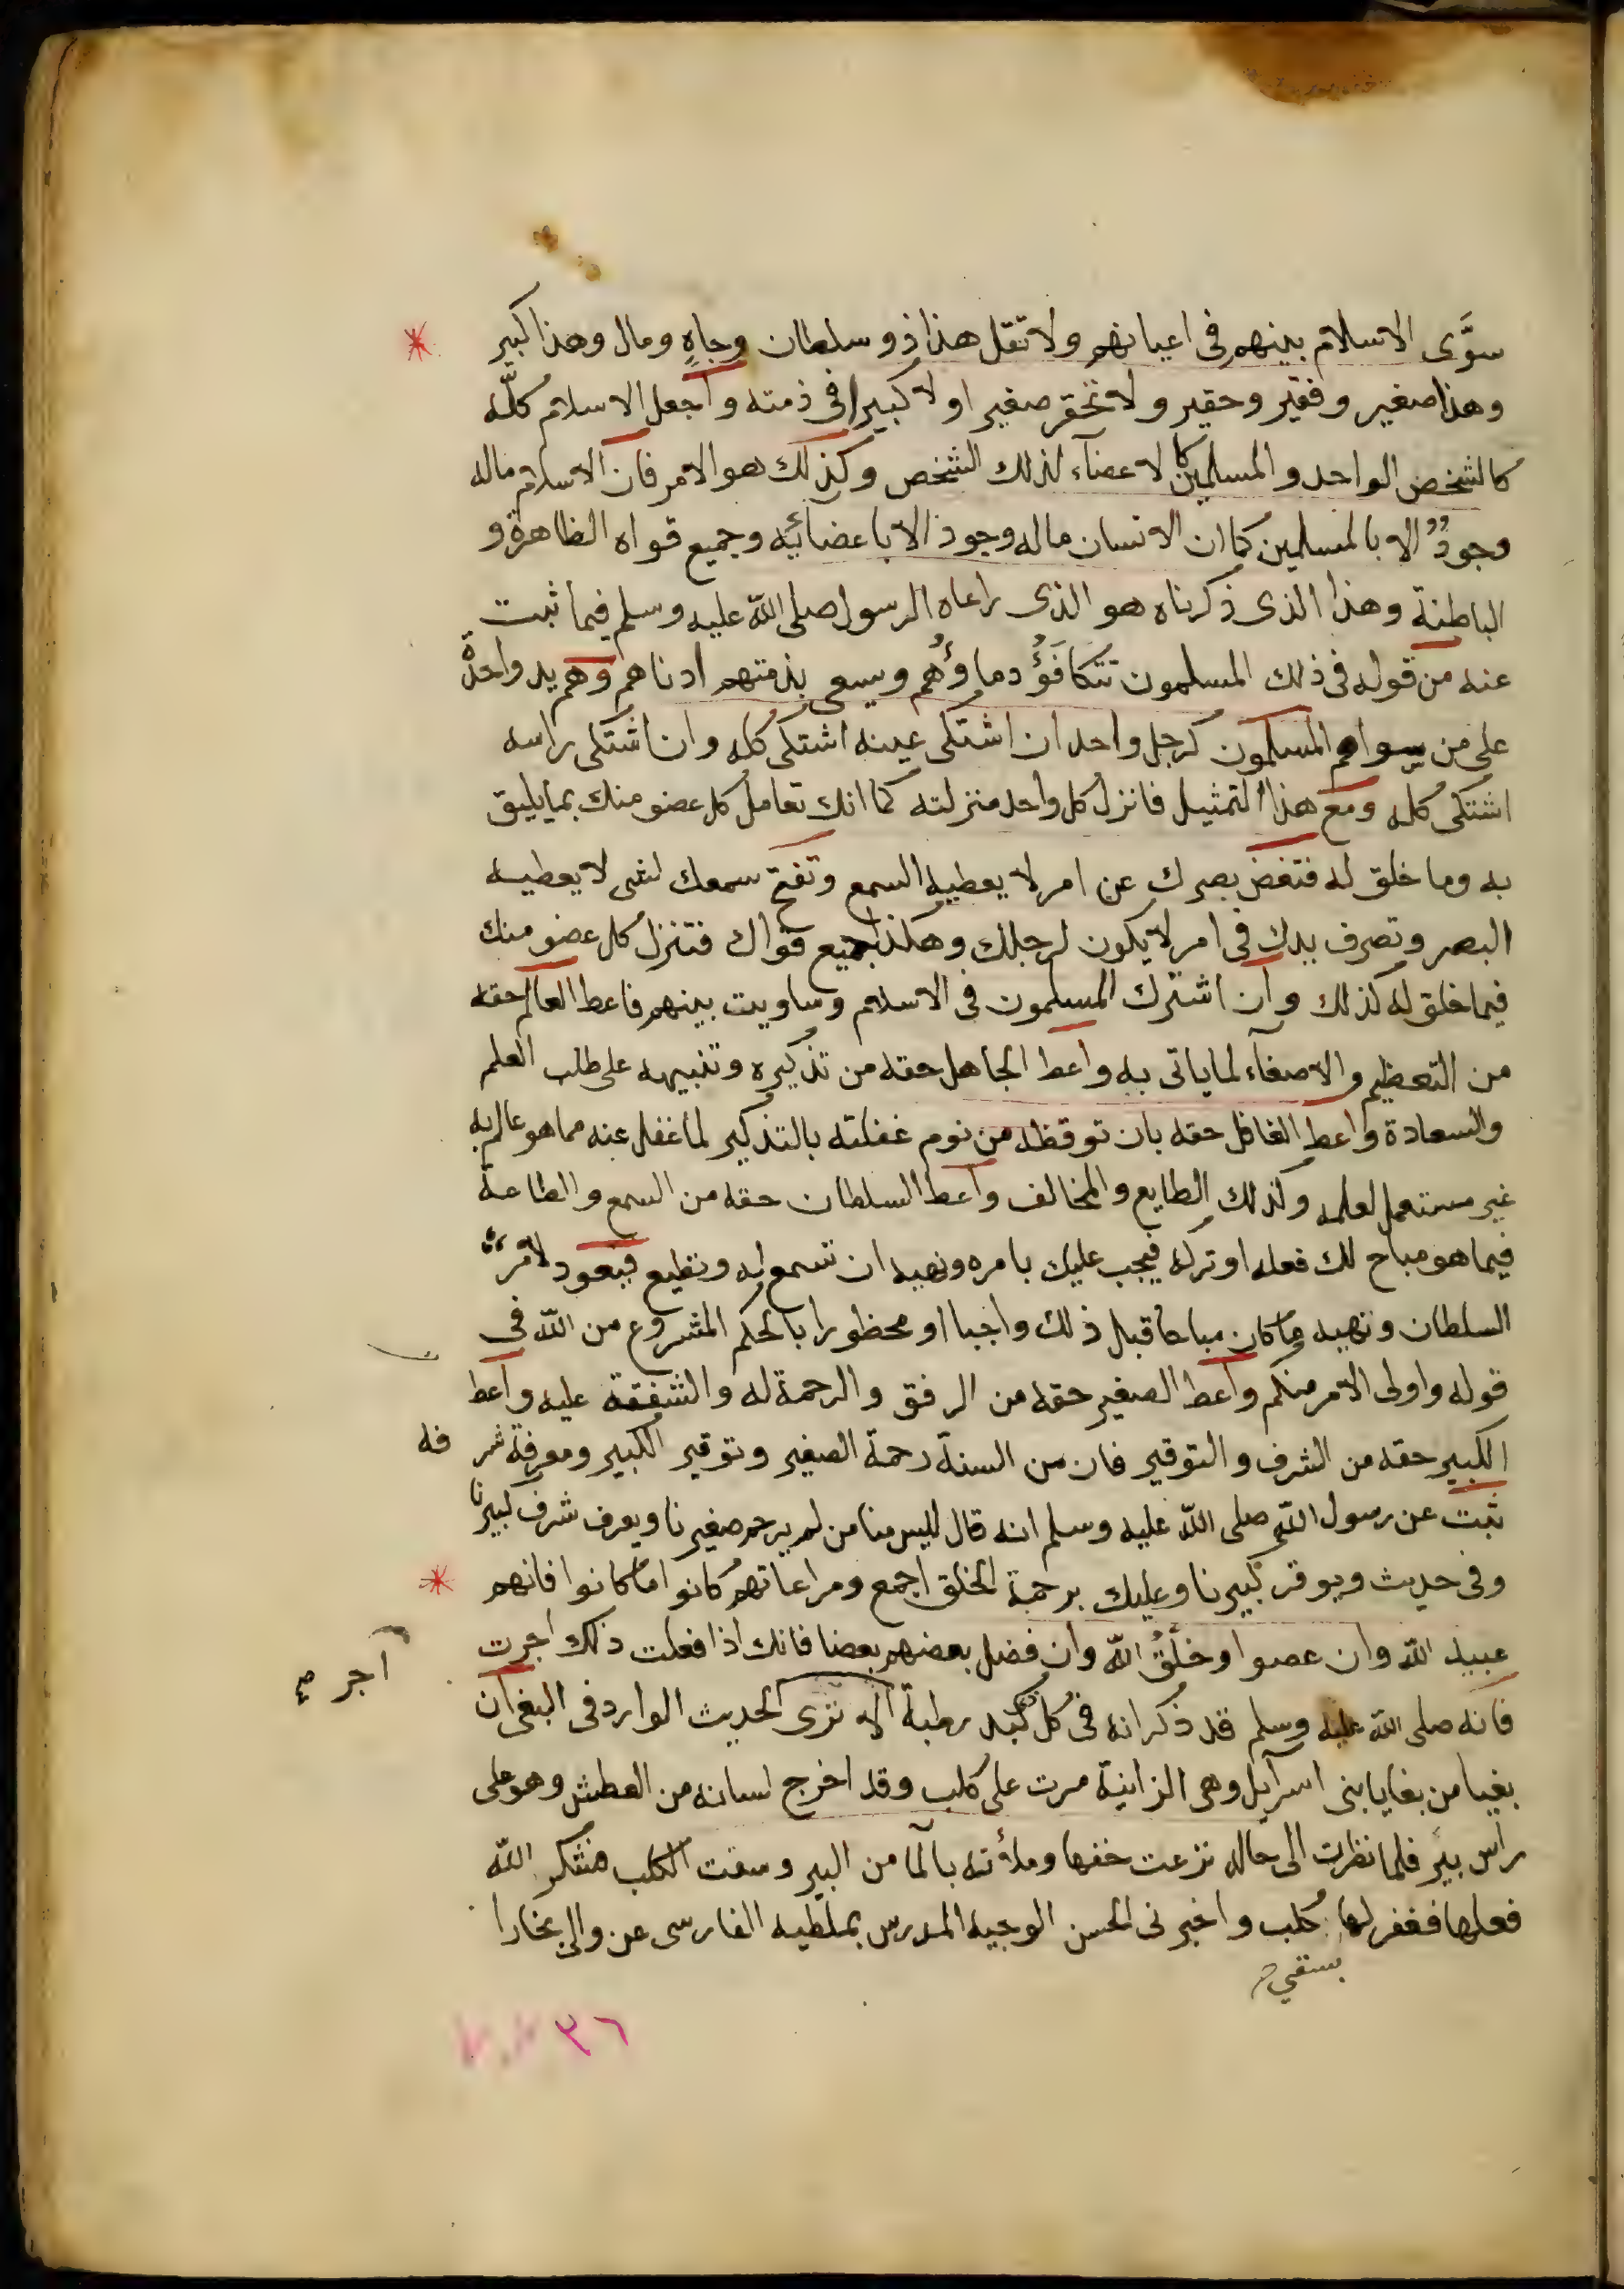 سوَّى الاسلام بينهم فى اعيانهم ولا تقل هذا ذو سلطان وجاهٍ ومال وهذا كبير
وهذا صغير وفقير وحقير ولا تحقر صغيرا ولا كبيرا فى ذمته واجعل الاسلام كلّه
كالشخص الواحد والمسلمين كالاعضآء لذلك الشخص وكذلك هو الامر فان الاسلام ماله
وجودٌ الا بالمسلمين كما ان الانسان ماله وجود الا باعضائه وجميع قواه الظاهرة و
الباطنة وهذا الذى ذكرناه هو الذى راعاه الرسول صلى الله عليه وسلم فيما ثبت
عنه من قوله فى ذلك المسلمون تتكافَؤُ دماؤُهُم ويسعى بذمتهم ادناهم وهم يد واحدة
على من سواهم المسلمون كرجل واحد ان اشتكى عينه اشتكى كله وان اشتكى راسه
اشتكى كله ومع هذا التمثيل فانزل كل واحد منزلته كما انك تعامل كل عضو منك بما يليق
به وما خلق له فتغض بصرك عن امر لا يعطيه السمع وتفتح سمعك لشى لا يعطيه
البصر وتصرف يدك فى امر لا يكون لرجلك وهكذا جميع قواك فتنزل كل عضو منك
فيما خلق له كذلك وان اشترك المسلمون فى الاسلام وساويت بينهم فاعط العالم حقه
من التعظيم والاصغآء لما ياتى به واعط الجاهل حقه من تذكيره وتنبيهه على طلب العلم
والسعادة واعط الغافل حقه بان توقظه من نوم غفلته بالتذكير لما غفل عنه مما هو عالم به
غير مستعمل لعلمه وكذلك الطايع والمخالف واعط السلطان حقه من السمع والطاعة
فيما هو مباح لك فعله او تركه فيجب عليك بامره ونهيه ان تسمع له وتطيع فيعود لامر
السلطان ونهيه ما كان مباحا قبل ذلك واجبا او محظورا بالحكم المشروع من الله فى
قوله واولى الامر منكم واعط الصغير حقه من الرفق والرحمة له والشفقة عليه واعط
الكبير حقه من الشرف والتوقير فان من السنة رحمة الصغير وتوقير الكبير ومعرفة شرفه
ثبت عن رسول الله صلى الله عليه وسلم انه قال ليس منا من لم يرحم صغيرنا ويعرف شرف كبيرنا
وفى حديث ويوقر كبيرنا وعليك برحمة الخلق اجمع ومراعاتهم كانوا ما كانوا فانهم
عبيد الله وان عصوا وخلْقُ الله وان فضل بعضهم بعضا فانك اذا فعلت ذلك اجرت
اجر
فانه صلى الله عليه وسلم قد ذكر انه فى كل كبد رطبة الا ترى الحديث الوارد فى البغى ان
بغيا من بغايا بنى اسرآيل وهى الزانية مرت على كلب وقد اخرج لسانه من العطش وهو على
راس بير فلما نظرت الى حاله نزعت خفها وملأته بالمآ من البير وسقت الكلب فشكر الله
فعلها فغفر لها كلب واخبرنى الحسن الوجيه المدرس بملطيه الفارسى عن والى بخارا
بسقي
٣٦